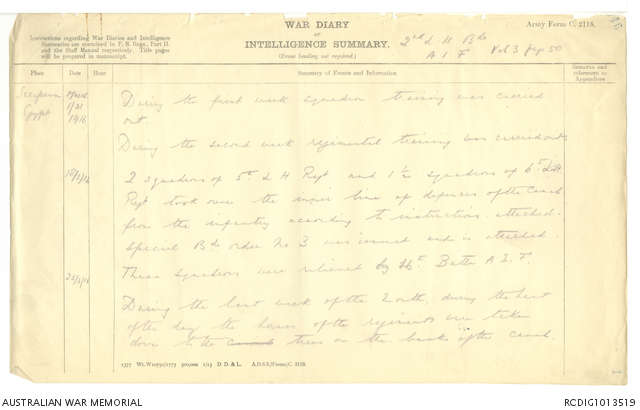 Instructions regarding War Diaries and Intelligence
Summaries are contained in F. S. Regs., Part II.
and the Staff Manual respectively. Title pages
will be prepared in manuscript.
WAR DIARY
or
INTELLIGENCE SUMMARY.
(Erase heading not required.)
Army Form C. 2118.
2nd L H Bde
A I F
Vol 3 pgp 50
Place
Date
Hour
Summary of Events and Information
Remarks and references to Appendices
Serapeum
Egypt
1/31
1916
During the first week squadron training was carried
out.
During the second week regimental training was carried out
2 squadrons of 5th L H Regt and 1 1/2 squadrons of 6th L H
Regt took over the inner line of defences of the Canal
from the infantry according to instructions attached.
Special Bde order No 3 was issued and is attached.
These squadrons were relieved by Battn A I F.
During the last week of the month, during the heat
of the day the horses of the regiments were taken
down to the trees on the banks of the canal.
D. D. & L.
AUSTRALIAN WAR MEMORIAL
RCDIG1013519